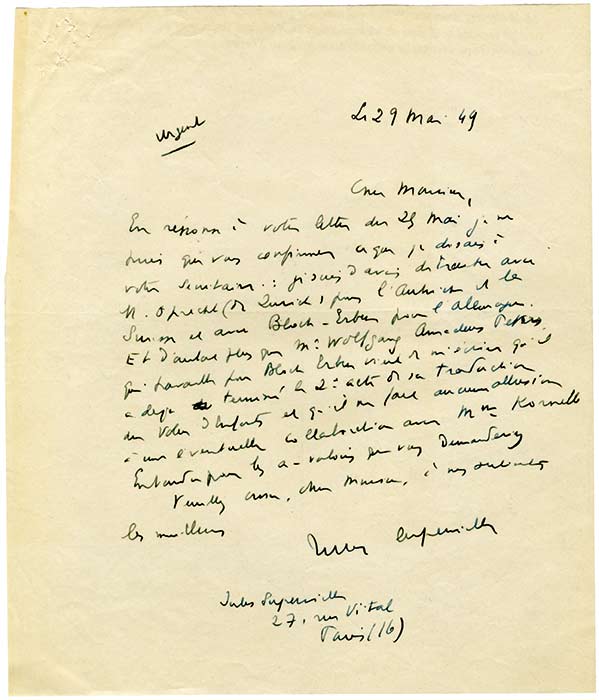 Le 29 Mai 49
Urgent
Cher Monsieur,
En réponse à votre lettre du 25 Mai je ne
puis que vous confirmer ce que je disais à
votre secrétaire : je suis d'avis de traiter avec
M. Oprecht (de Zurich) pour l'Autriche et la
Suisse et avec Bloch-Erben pour l'Allemagne.
Et d'autant plus que Mr Wolfgang Amadeus Peters
qui travaille pour Bloch Erben vient de m'écrire qu'il
a déjà terminé le 2e acte de sa traduction
du Voleur d'Enfants et qu'il ne fait aucune allusion
à une éventuelle collaboration avec Mme
Entendu pour les a-valoirs que vous demanderez
Veuillez croire, cher Monsieur, à mes sentiments
les meilleurs
Jules Supervielle
Jules Supervielle
27, rue Vital
Paris (16)